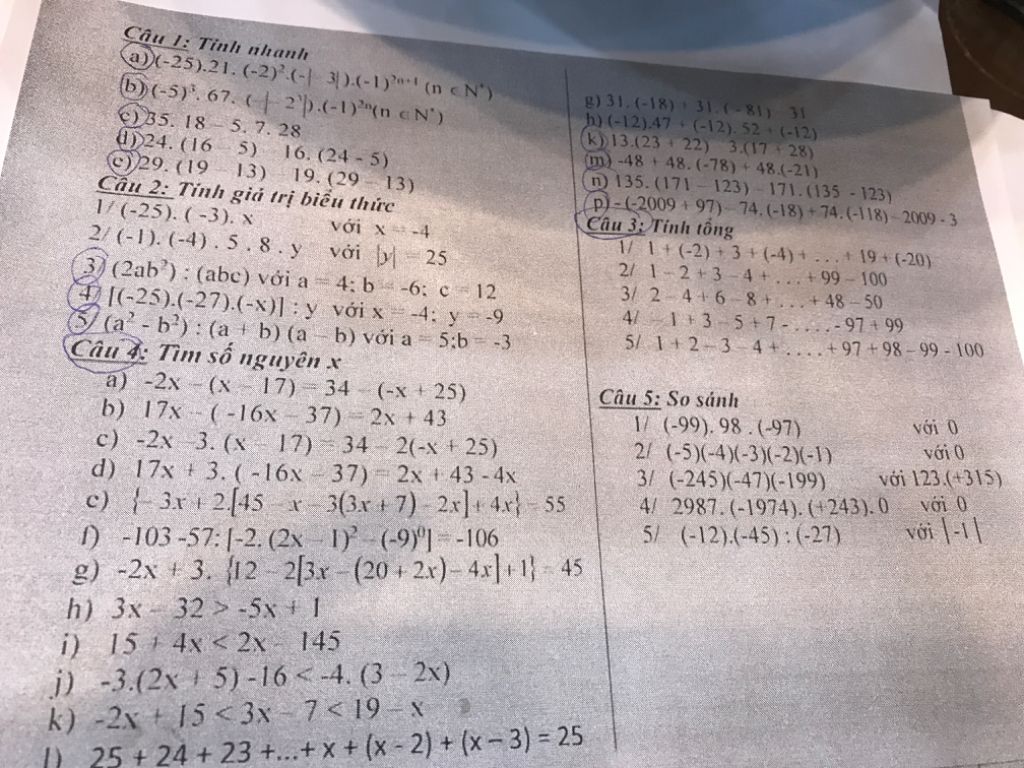 Câu 1: Tính nhanh
a) (-25).21. (-2)². (-|- 3|).(-1)²ⁿ⁺¹ (n ∈ N*)
b) (-5)³. 67. (-|- 2³|).(-1)²ⁿ(n ∈ N*)
c) 35. 18 – 5. 7. 28
d) 24. (16 – 5) – 16. (24 - 5)
e) 29. (19 – 13) – 19. (29 – 13)
Câu 2: Tính giá trị biểu thức
1/ (-25). ( -3). x với x = -4
2/ (-1). (-4) . 5 . 8 . y với |y| = 25
3/ (2ab²) : (abc) với a = 4; b = -6; c = 12
4/ [(-25).(-27).(-x)] : y với x = -4; y = -9
5/ (a² - b²) : (a + b) (a – b) với a = 5;b = -3
Câu 4: Tìm số nguyên x
a) -2x – (x – 17) = 34 – (-x + 25)
b) 17x – ( -16x – 37) = 2x + 43
c) -2x –3. (x – 17) = 34 – 2(-x + 25)
d) 17x + 3. ( -16x – 37) = 2x + 43 - 4x
e) {– 3x + 2.[45 – x – 3(3x + 7) – 2x] + 4x} = 55
f) -103 -57: [-2. (2x – 1)² – (-9)⁰] = -106
g) -2x + 3. {12 – 2[3x – (20 + 2x) – 4x] + 1} = 45
h) 3x – 32 > -5x + 1
i) 15 + 4x < 2x – 145
j) -3.(2x + 5) -16 < -4. (3 – 2x)
k) -2x + 15 < 3x – 7 < 19 – x
l) 25 + 24 + 23 +...+ x + (x - 2) + (x – 3) = 25
g) 31. (-18) + 31. ( - 81) – 31
h) (-12).47 + (-12). 52 + (-12)
k) 13.(23 + 22) – 3.(17 + 28)
m) -48 + 48. (-78) + 48.(-21)
n) 135. (171 – 123) – 171. (135 - 123)
p) - (-2009 + 97) – 74. (-18) + 74. (-118) – 2009 - 3
Câu 3: Tính tổng
1/ 1 + (-2) + 3 + (-4) + . . . + 19 + (-20)
2/ 1 – 2 + 3 – 4 + . . . + 99 – 100
3/ 2 – 4 + 6 – 8 + . . . + 48 – 50
4/ – 1 + 3 – 5 + 7 - . . . . - 97 + 99
5/ 1 + 2 – 3 – 4 + . . . . + 97 + 98 – 99 - 100
Câu 5: So sánh
1/ (-99). 98 . (-97) với 0
2/ (-5)(-4)(-3)(-2)(-1) với 0
3/ (-245)(-47)(-199) với 123.(+315)
4/ 2987. (-1974). (+243). 0 với 0
5/ (-12).(-45) : (-27) với |-1|